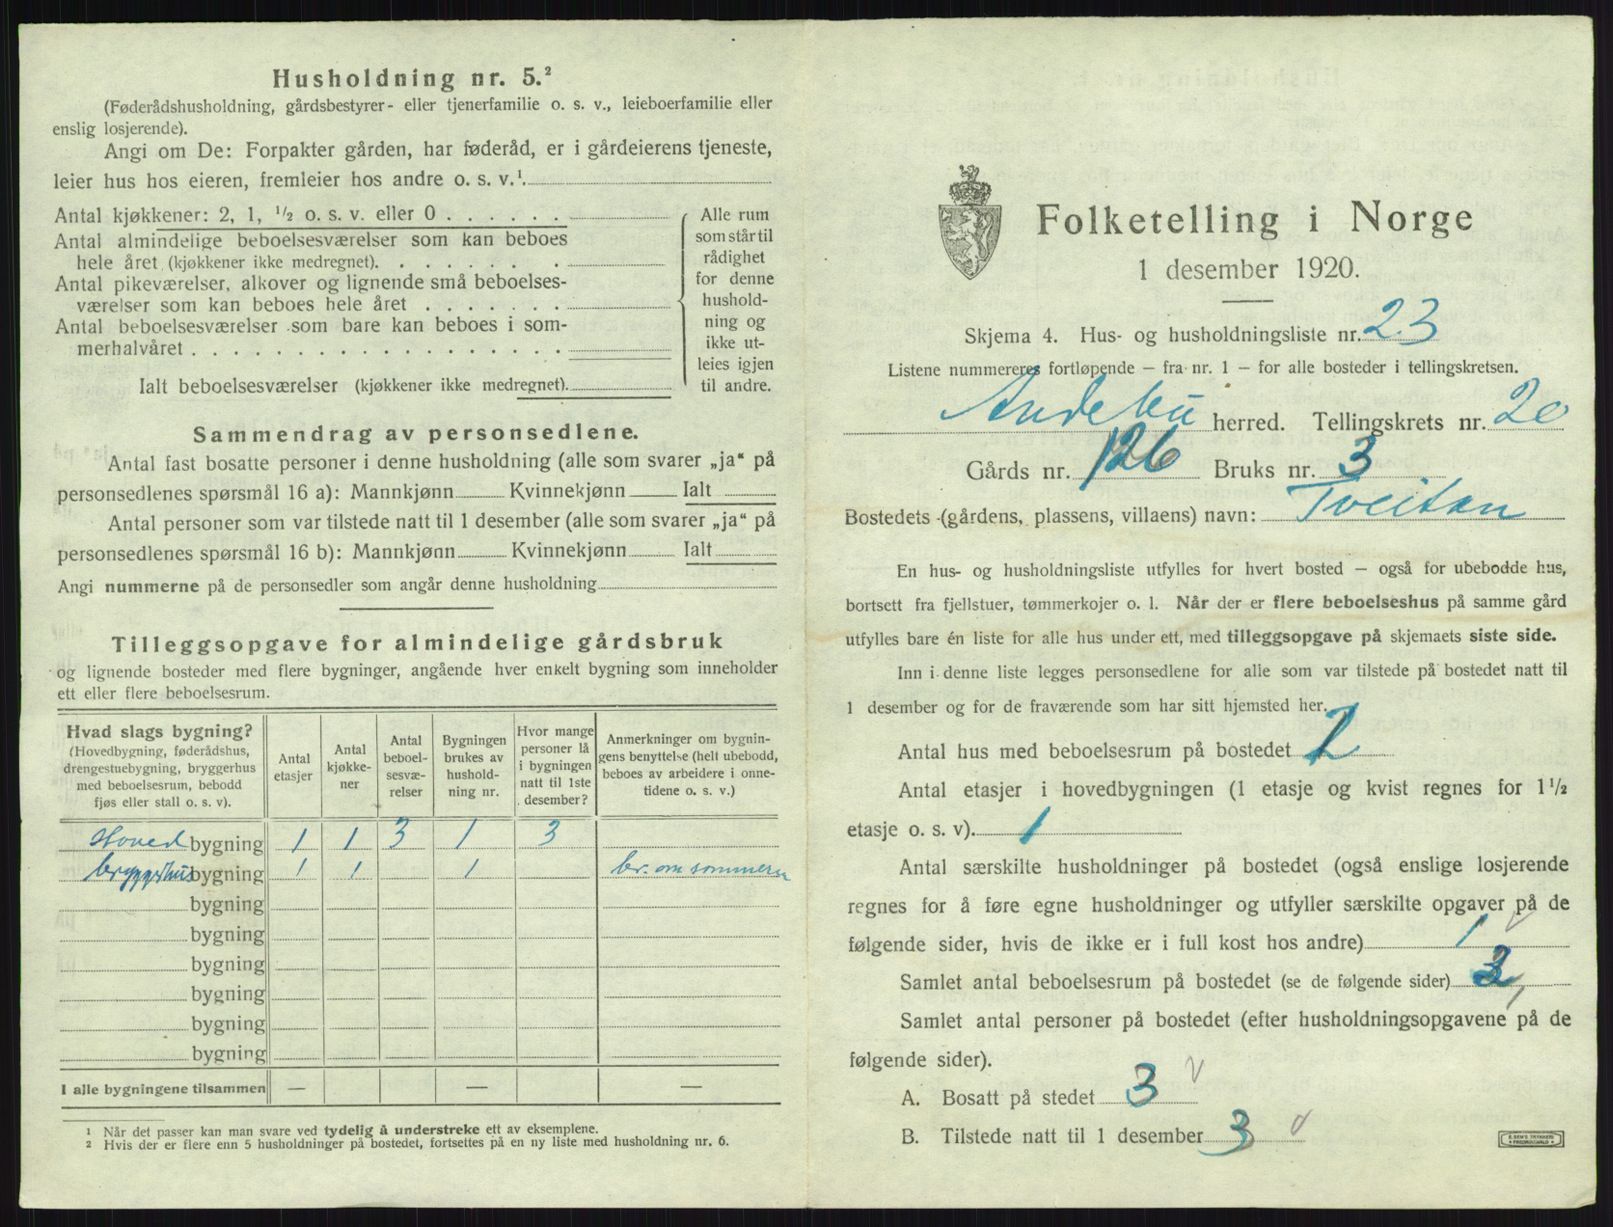 Husholdning nr. 5.²
(Føderådshusholdning, gårdsbestyrer- eller tjenerfamilie o. s. v., leieboerfamilie eller
enslig losjerende).
Angi om De: Forpakter gården, har føderåd, er i gårdeierens tjeneste,
leier hus hos eieren, fremleier hos andre o. s. v.¹
Antal kjøkkener: 2, 1, ½ o. s. v. eller 0 . . . . . .
Antal almindelige beboelsesværelser som kan beboes
hele året (kjøkkener ikke medregnet). . . . . . . .
Antal pikeværelser, alkover og lignende små beboelses-
værelser som kan beboes hele året . . . . . . .
Antal beboelsesværelser som bare kan beboes i som-
merhalvåret . . . . . . . . . . . . . . . . .
Ialt beboelsesværelser (kjøkkener ikke medregnet).
Alle rum
som står til
rådighet
for denne
hushold-
ning og
ikke ut-
leies igjen
til andre.
Sammendrag av personsedlene.
Antal fast bosatte personer i denne husholdning (alle som svarer „ja“ på
personsedlenes spørsmål 16 a): Mannkjønn Kvinnekjønn Ialt
Antal personer som var tilstede natt til 1 desember (alle som svarer „ja“ på
personsedlenes spørsmål 16 b): Mannkjønn Kvinnekjønn Ialt
Angi nummerne på de personsedler som angår denne husholdning
Tilleggsopgave for almindelige gårdsbruk
og lignende bosteder med flere bygninger, angående hver enkelt bygning som inneholder
ett eller flere beboelsesrum.
Hvad slags bygning?
(Hovedbygning, føderådshus,
drengestuebygning, bryggerhus
med beboelsesrum, bebodd
fjøs eller stall o. s. v).
Antal
etasjer
Antal
kjøkke-
ner
Antal
beboel-
sesvæ-
relser
Bygningen
brukes av
hushold-
ning nr.
Hvor mange
personer lå
i bygningen
natt til 1ste
desember?
Anmerkninger om bygnin-
gens benyttelse (helt ubebodd,
beboes av arbeidere i onne-
tidene o. s. v.)
Hoved bygning 1 1 3 1 3
bryggerhus bygning 1 1 1 br. om sommeren
bygning
bygning
bygning
bygning
bygning
bygning
I alle bygningene tilsammen — — —
¹ Når det passer kan man svare ved tydelig å understreke ett av eksemplene.
² Hvis der er flere enn 5 husholdninger på bostedet, fortsettes på en ny liste med husholdning nr. 6.
Folketelling i Norge
1 desember 1920.
Skjema 4. Hus- og husholdningsliste nr. 23
Listene nummereres fortløpende — fra nr. 1 — for alle bosteder i tellingskretsen.
Andebu herred. Tellingskrets nr. 20
Gårds nr. 126 Bruks nr. 3
Bostedets (gårdens, plassens, villaens) navn: Tveitan
En hus- og husholdningsliste utfylles for hvert bosted — også for ubebodde hus,
bortsett fra fjellstuer, tømmerkojer o. l. Når der er flere beboelseshus på samme gård
utfylles bare én liste for alle hus under ett, med tilleggsopgave på skjemaets siste side.
Inn i denne liste legges personsedlene for alle som var tilstede på bostedet natt til
1 desember og for de fraværende som har sitt hjemsted her.
Antal hus med beboelsesrum på bostedet 2
Antal etasjer i hovedbygningen (1 etasje og kvist regnes for 1 ½
etasje o. s. v). 1
Antal særskilte husholdninger på bostedet (også enslige losjerende
regnes for å føre egne husholdninger og utfyller særskilte opgaver på de
følgende sider, hvis de ikke er i full kost hos andre) 1
Samlet antal beboelsesrum på bostedet (se de følgende sider) 3
Samlet antal personer på bostedet (efter husholdningsopgavene på de
følgende sider).
A. Bosatt på stedet 3
B. Tilstede natt til 1 desember 3